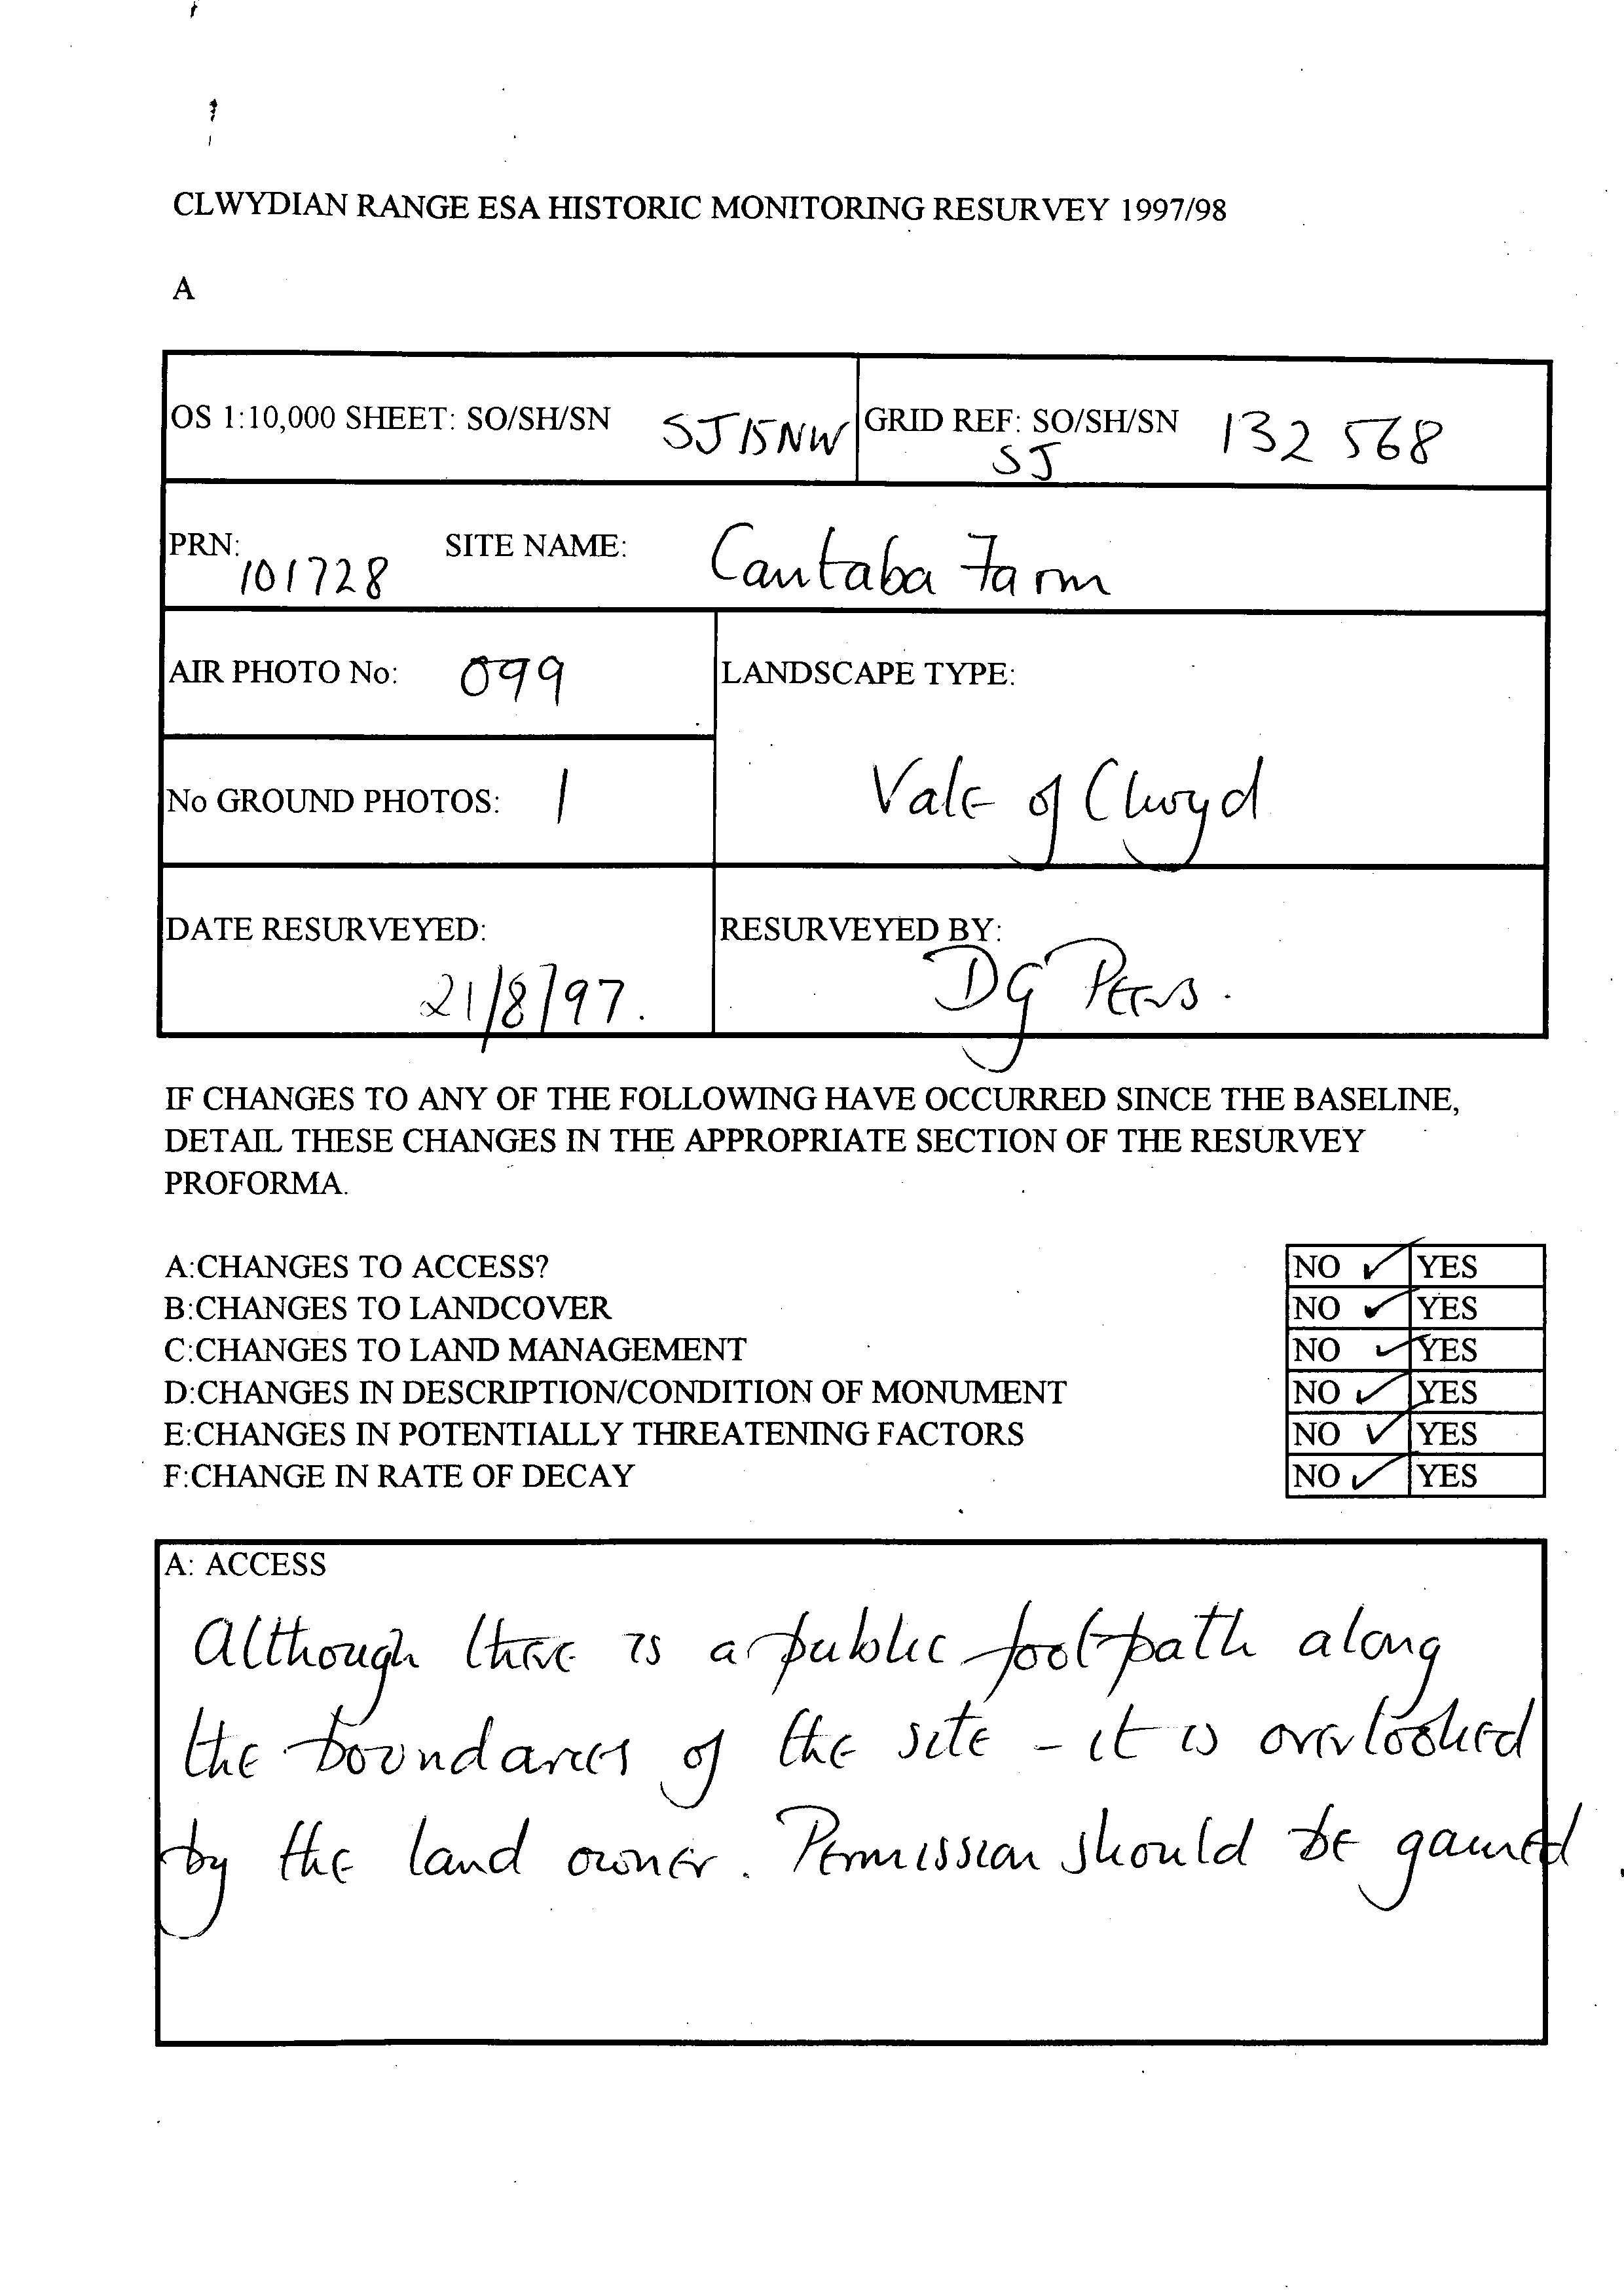 CLWYDIAN RANGE ESA HISTORIC MONITORING RESURVEY 1997/98
A
OS 1:10,000 SHEET: SO/SH/SN SJ15NW
GRID REF: SO/SH/SN 132 568
SJ
PRN: 101728 SITE NAME: Cantaba Farm
AIR PHOTO No: 099
LANDSCAPE TYPE:
Vale of Clwyd
No GROUND PHOTOS: 1
DATE RESURVEYED:
21/8/97.
RESURVEYED BY:
DG
IF CHANGES TO ANY OF THE FOLLOWING HAVE OCCURRED SINCE THE BASELINE,
DETAIL THESE CHANGES IN THE APPROPRIATE SECTION OF THE RESURVEY
PROFORMA.
A:CHANGES TO ACCESS? NO ✓ YES
B:CHANGES TO LANDCOVER NO ✓ YES
C:CHANGES TO LAND MANAGEMENT NO ✓ YES
D:CHANGES IN DESCRIPTION/CONDITION OF MONUMENT NO ✓ YES
E:CHANGES IN POTENTIALLY THREATENING FACTORS NO ✓ YES
F:CHANGE IN RATE OF DECAY NO ✓ YES
A: ACCESS
Although there is a public footpath along
the boundaries of the site - it is overlooked
by the land owner. Permission should be gained.